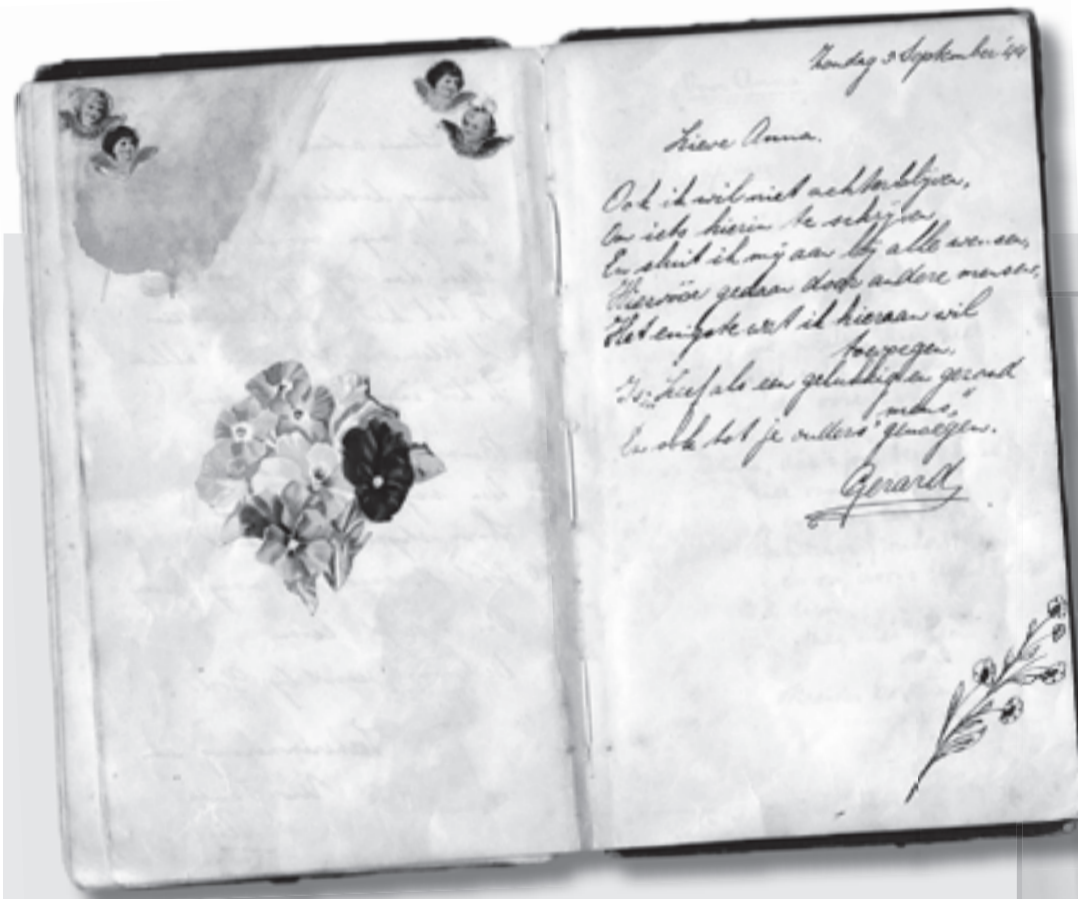 Zondag 3 September '44
Lieve Anna.
Ook ik wil niet achterblijven,
Om iets hierin te schrijven
En sluit ik mij aan bij alle wensen,
Hiervóór gedaan door andere mensen,
Het enigste wat ik hieraan wil
toevoegen,
Is: „Leef als een gelukkig en gezond
mens,"
En ook tot je ouders' genoegen.
Gerard